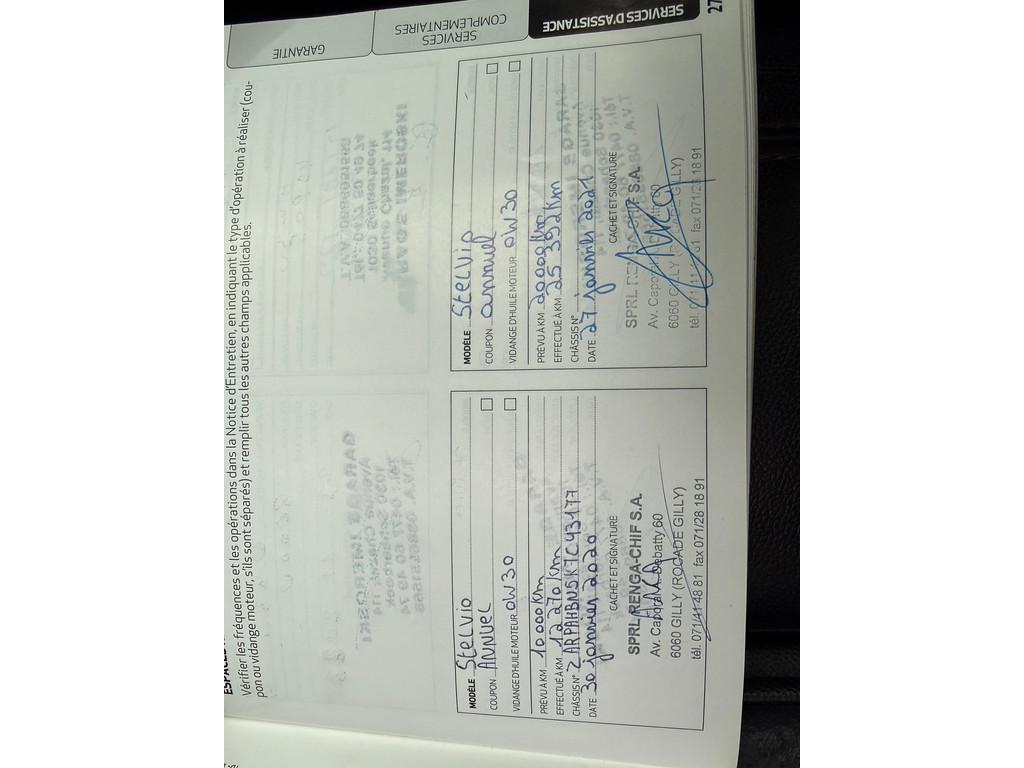 Vérifier les fréquences et les opérations dans la Notice d'Entretien, en indiquant le type d'opération à réaliser (cou-
pon ou vidange moteur, s'ils sont séparés) et remplir tous les autres champs applicables.
MODÈLE Stelvio
COUPON ANNUEL
VIDANGE D'HUILE MOTEUR 0W30
PRÉVU À KM 10 000 km
EFFECTUÉ À KM 12 270 km
CHÂSSIS N° ZARPAHBN5K7C43177
DATE 30 janvier 2020
CACHET ET SIGNATURE
SPRL RENGA-CHIF S.A.
Av. Caporal Debatty 60
6060 GILLY (ROCADE GILLY)
tél. 071/41 48 81 fax 071/28 18 91
MODÈLE Stelvio
COUPON annuel
VIDANGE D'HUILE MOTEUR 0W30
PRÉVU À KM 20000 km
EFFECTUÉ À KM 25 392 km
CHÂSSIS N°
DATE 27 janvier 2021
CACHET ET SIGNATURE
SPRL RENGA-CHIF S.A.
Av. Caporal Debatty 60
6060 GILLY (ROCADE GILLY)
tél. 071/41 81 fax 071/28 18 91
GARANTIE
SERVICES
COMPLÉMENTAIRES
SERVICES D'ASSISTANCE
27